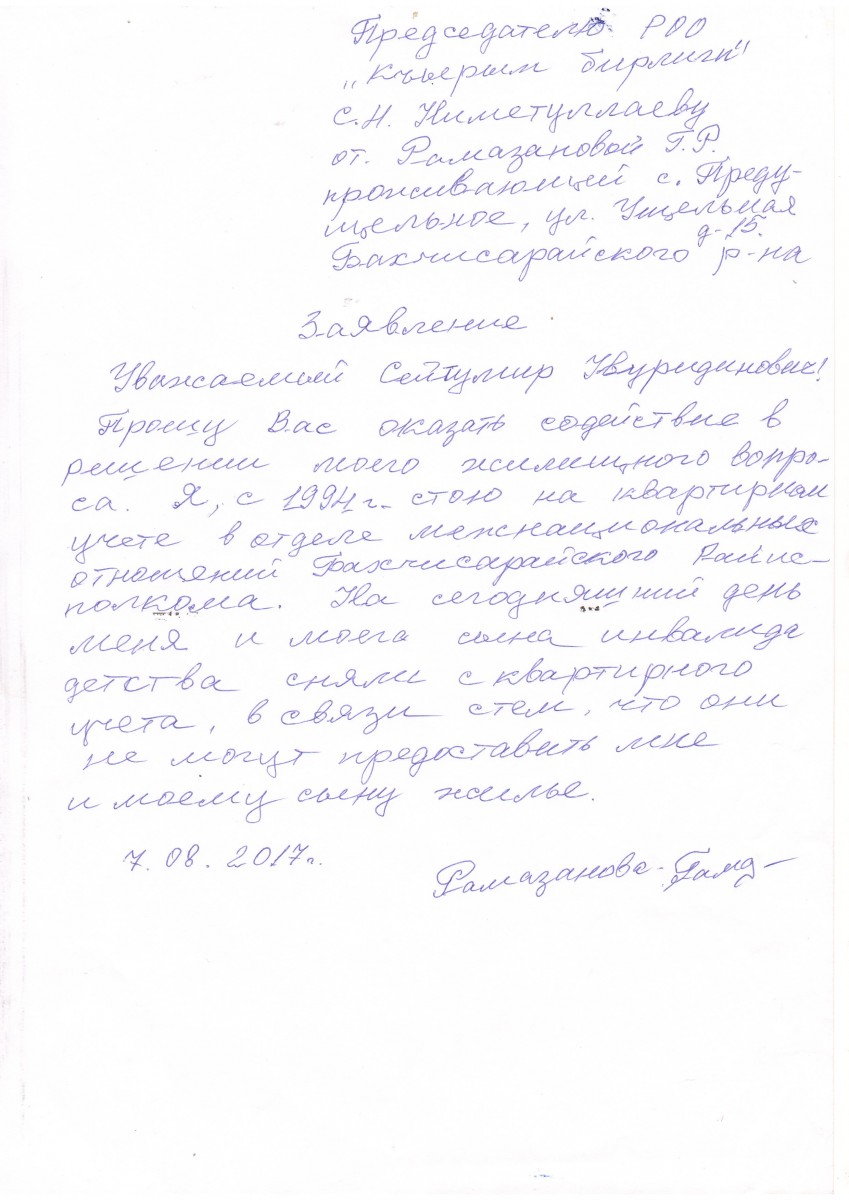 Председателю РОО
„Къырым бирлиги"
С.Н. Ниметуллаеву
от. Рамазановой Г.Р.
проживающий с. Преду-
щельное, ул. Ущельная
д-15.
Бахчисарайского р-на
Заявление
Уважаемый Сейтумир
Прошу Вас оказать содействие в
решении моего жилищного вопро-
са. Я, с 1994 г. стою на квартирном
учете в отделе межнациональных
отношений Бахчисарайского Райис-
полкома. На сегодняшний день
меня и моего сына инвалида
детства сняли с квартирного
учета, в связи стем, что они
не могут предоставить мне
и моему сыну жилье.
7.08.2017г.
Рамазанова-